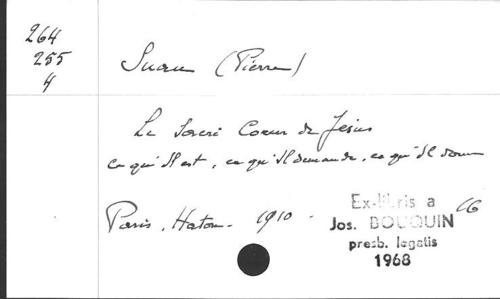 264
255
4
Suau (Pierre)
Le Sacré Coeur de Jésus
ce qu'il est, ce qu'il demande, ce qu'il donne
Paris, Haton. 1910. 16
Ex-libris a
Jos. BOUQUIN
presb. legatis
1968